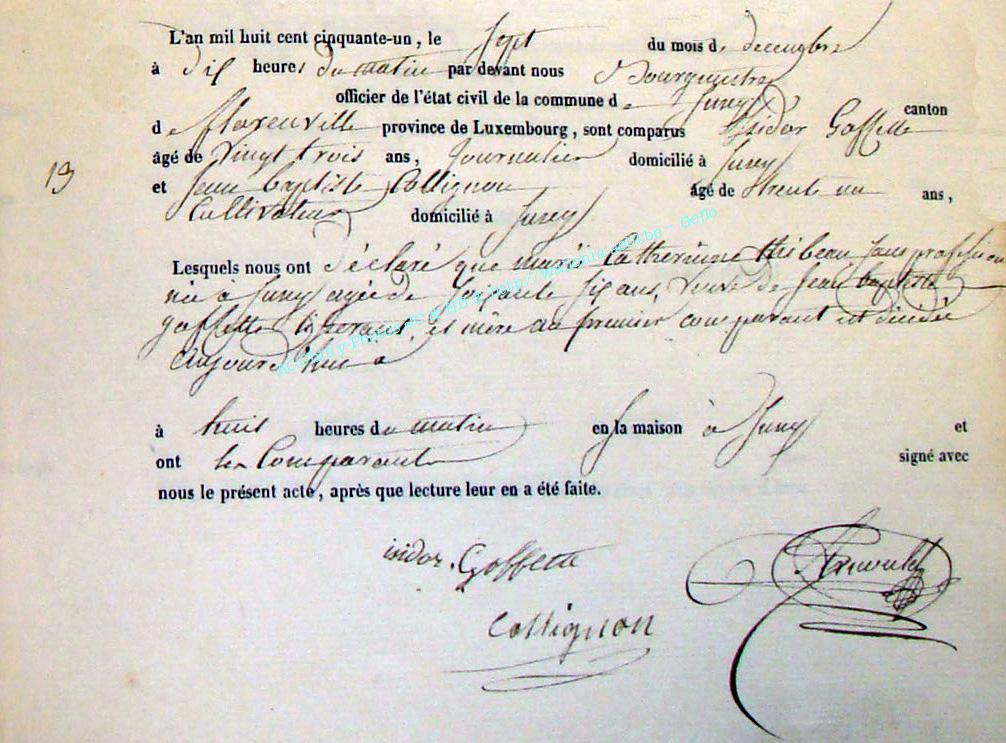 L'an mil huit cent cinquante-un, le Sept du mois de decembre
à dix heures du matin par devant nous Bourgmestre
officier de l'état civil de la commune de Suny canton
de florenville province de Luxembourg, sont comparus Isidor Goffette
âgé de vingt trois ans, Journalier domicilié à Suny
19
et Jean baptiste Collignon âgé de trente un ans,
Cultivateur domicilié à Suny
Lesquels nous ont déclaré que marie Catherinne thibeau sans profession
née à Suny agée de soixante six ans, veuve de Jean baptiste
goffette et mère au premier comparant est décédée
aujourd'hui a
à huit heures du matin en la maison à Suny et
ont les Comparants signé avec
nous le présent acte, après que lecture leur en a été faite.
isidor. Goffette
Collignon